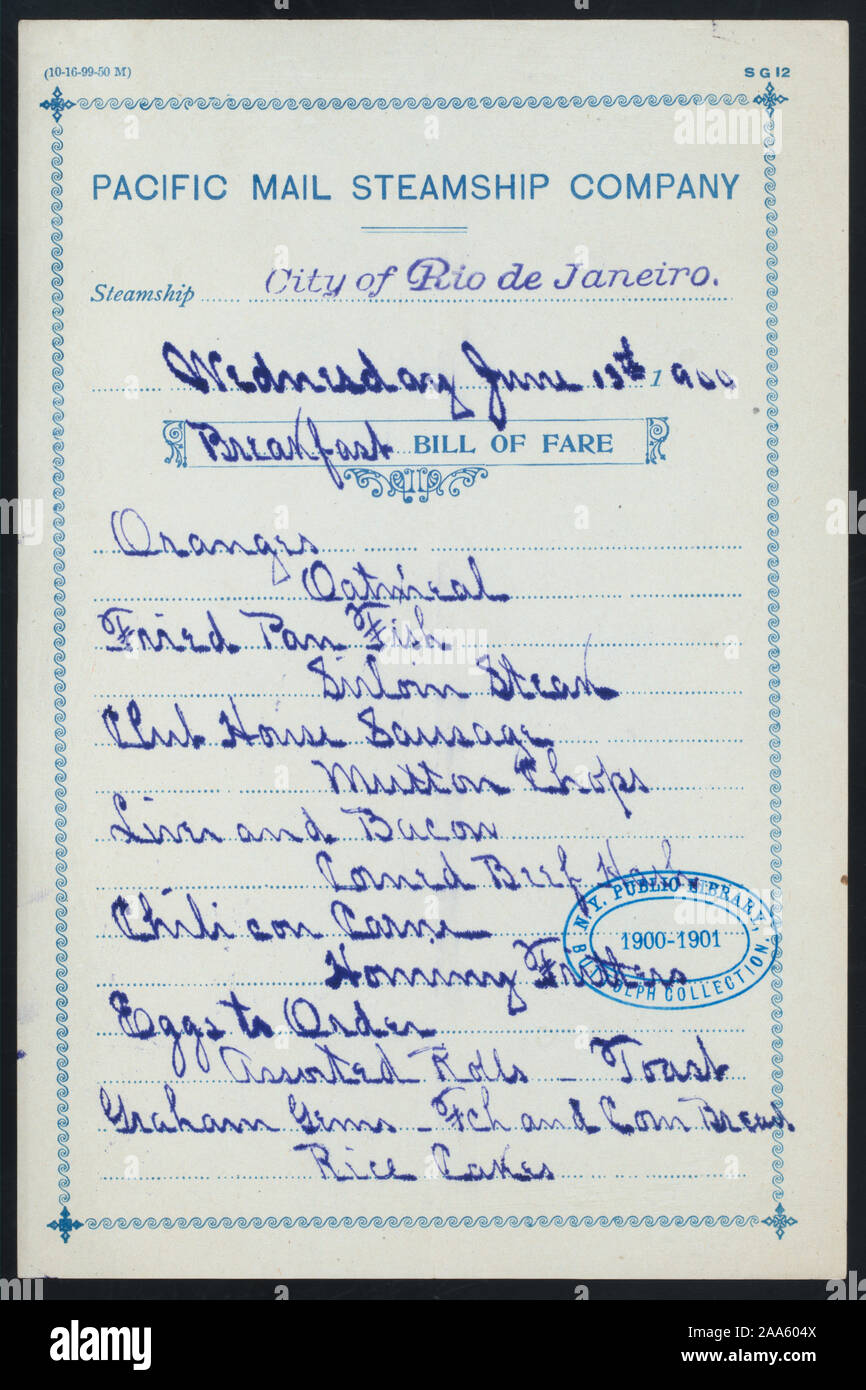 (10-16-99-50 M) SG12
PACIFIC MAIL STEAMSHIP COMPANY
Steamship City of Rio de Janeiro.
Wednesday June 13th 1900
Breakfast BILL OF FARE
Oranges
Oatmeal
Fried Pan Fish
Sirloin Steak
Club House Sausage
Mutton Chops
Liver and Bacon
Corned Beef Hash
Chili con Carne
N.Y. PUBLIC LIBRARY,
1900-1901
BUTTOLPH COLLECTION.
Hominy Fritters
Eggs to Order
Assorted Rolls - Toast
Graham Gems - Fch and Corn Bread
Rice Cakes
alamy
a
alamy
Image ID: 2AA604X
www.alamy.com